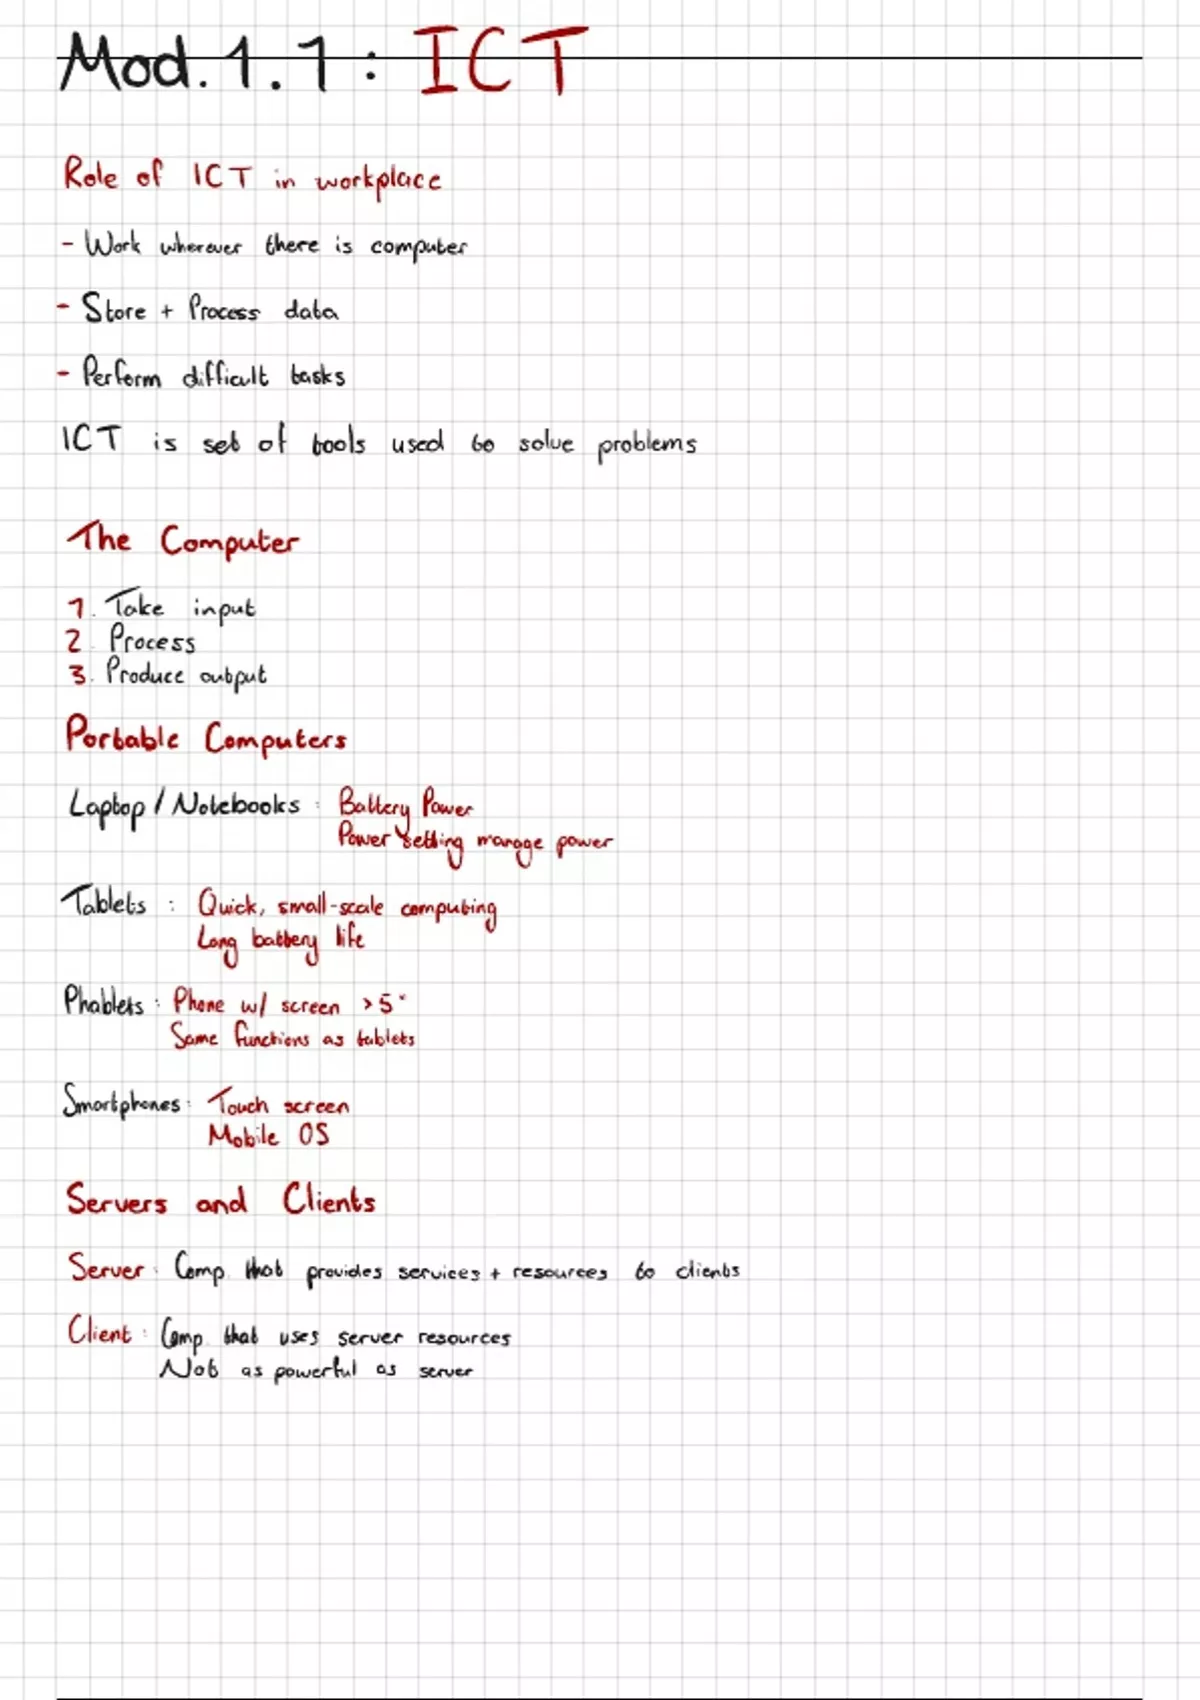 Mod. 1.1 : ICT
Role of ICT in workplace
- Work wherever there is computer
- Store + Process data
- Perform difficult tasks
ICT is set of tools used to solve problems
The Computer
1. Take input
2. Process
3. Produce output
Portable Computers
Laptop / Notebooks : Battery Power
Power setting manage power
Tablets : Quick, small-scale computing
Long battery life
Phablets : Phone w/ screen >5"
Same functions as tablets
Smartphones: Touch screen
Mobile OS
Servers and Clients
Server : Comp. that provides services + resources to clients
Client : Comp. that uses server resources
Not as powerful as server